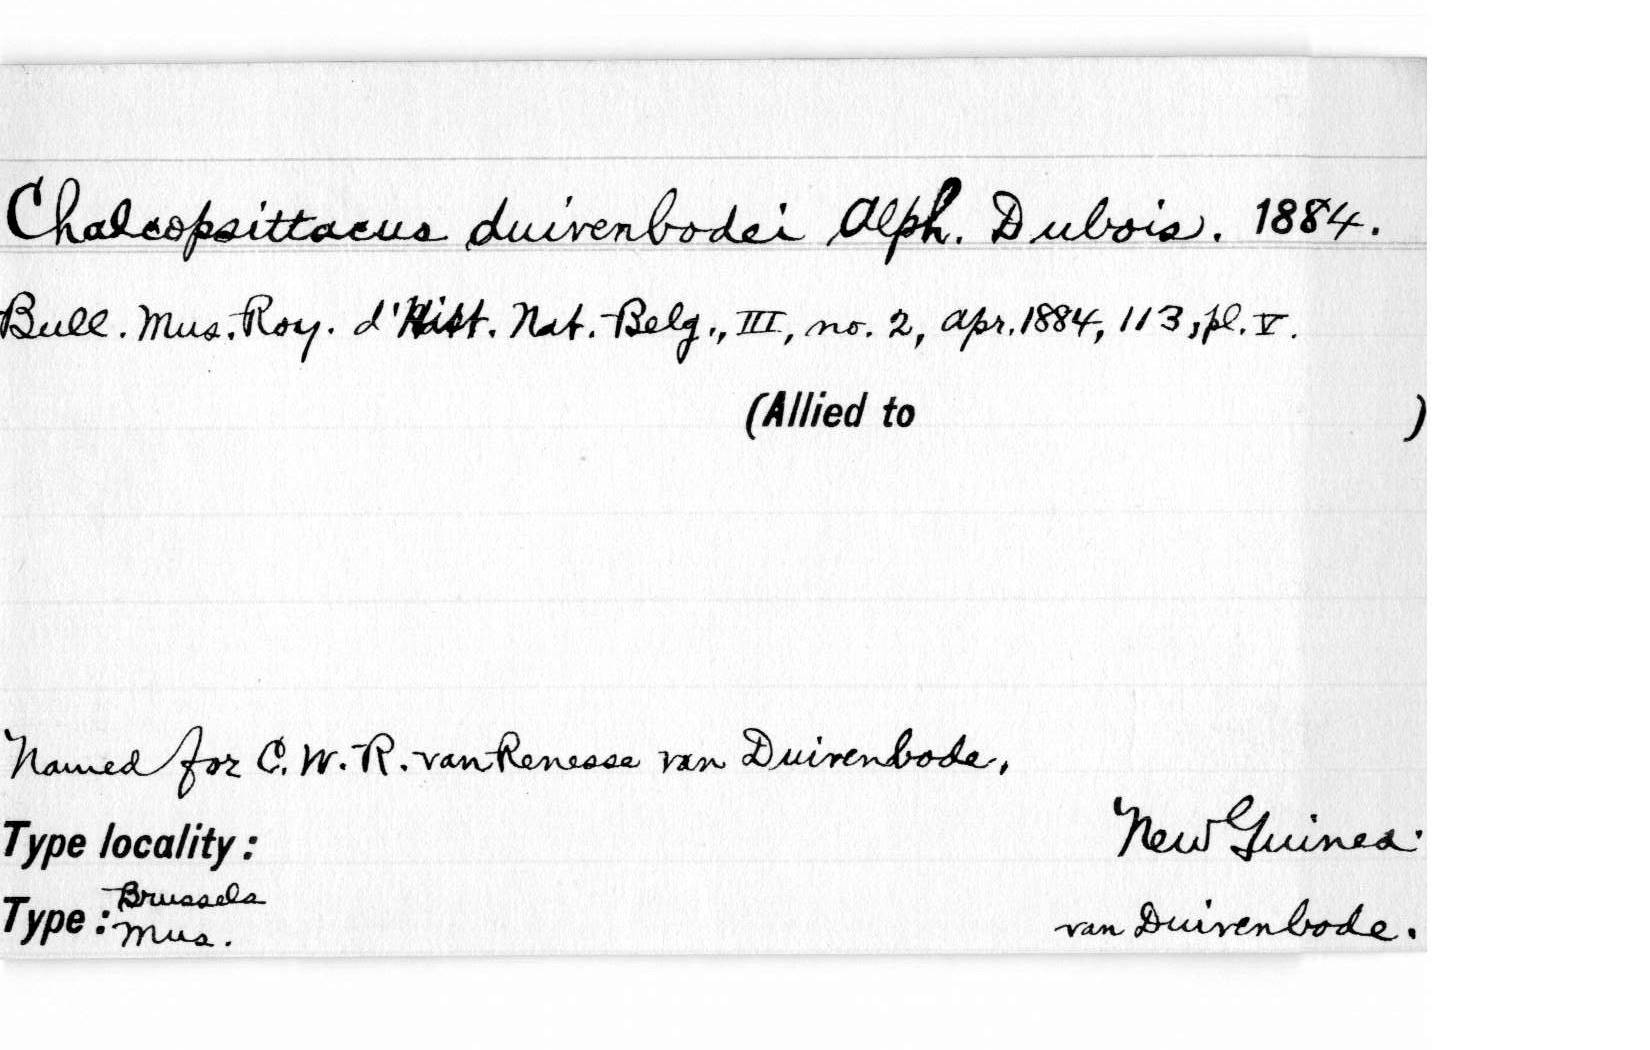 Chalcopsittacus duivenbodei Alph. Dubois. 1884.
Bull. Mus. Roy. d'Hist. Nat. Belg., III, no. 2, Apr. 1884, 113, pl. V.
(Allied to )
Named for C. W. R. van Renesse van Duivenbode.
Type locality: New Guinea.
Type: Brussels Mus. van Duivenbode.